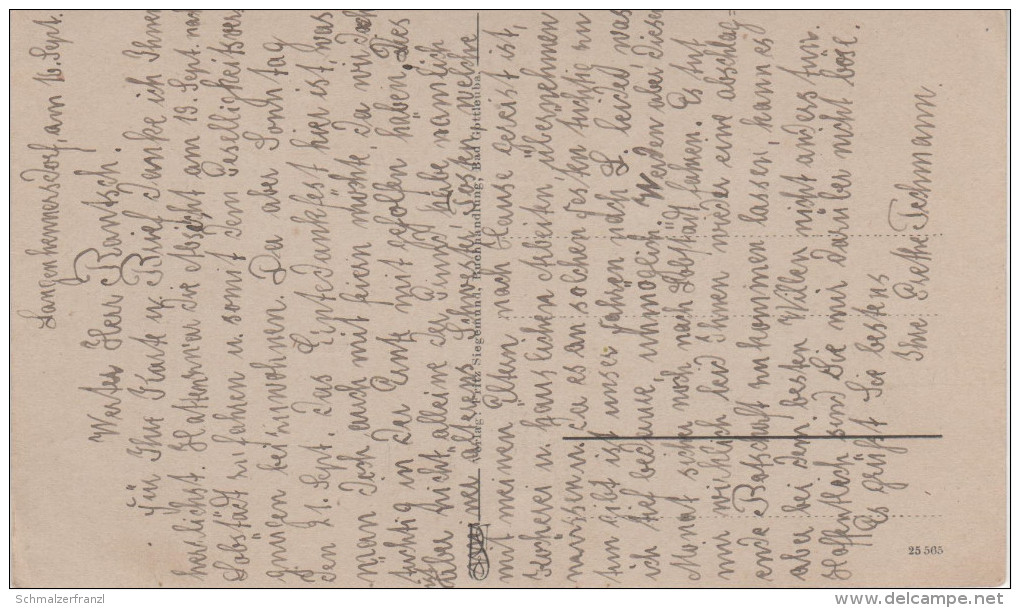 Langenhennersdorf, am 16. Sept.
Werter Herr Rantsch.
Für Ihre Karte u. Brief danke ich Ihnen
herzlichst. Hatten wir die Absicht am 19. Sept. nach
zu fahren u. somit dem Geselligkeitsver-
gnügen beizuwohnen. Da aber Sonntag
den 21. Sept. das Erntedankfest hier ist, was
man doch auch mit feiern möchte, da wir doch
tüchtig in der Ernte mit geholfen haben. Des
aber nicht alleine der Grund, habe nämlich
meiner ältern Schwester, welche
mit meinen Eltern nach Hause gereist ist,
in häuslichen Arbeiten übernehmen
müssen, da es an solchen Festen tüchtig zu
tun gibt ist unser fahren nach L. leider, was
ich tief bedaure, unmöglich. Werden aber diesen
Monat sicher noch nach fahren. Es tut
mir wirklich leid Ihnen wieder eine abschlag=
ende Botschaft zukommen lassen, kann es
aber bei dem besten Willen nicht anders tun.
Hoffentlich sind Sie mir darüber nicht böse.
Es grüßt Sie bestens
Ihre Grethe Tschmann.
Verlag: Fritz Siegemund, Buchhandlung, Bad Gottleuba.
25 565
Schmalzerfranzl
delcampe.net